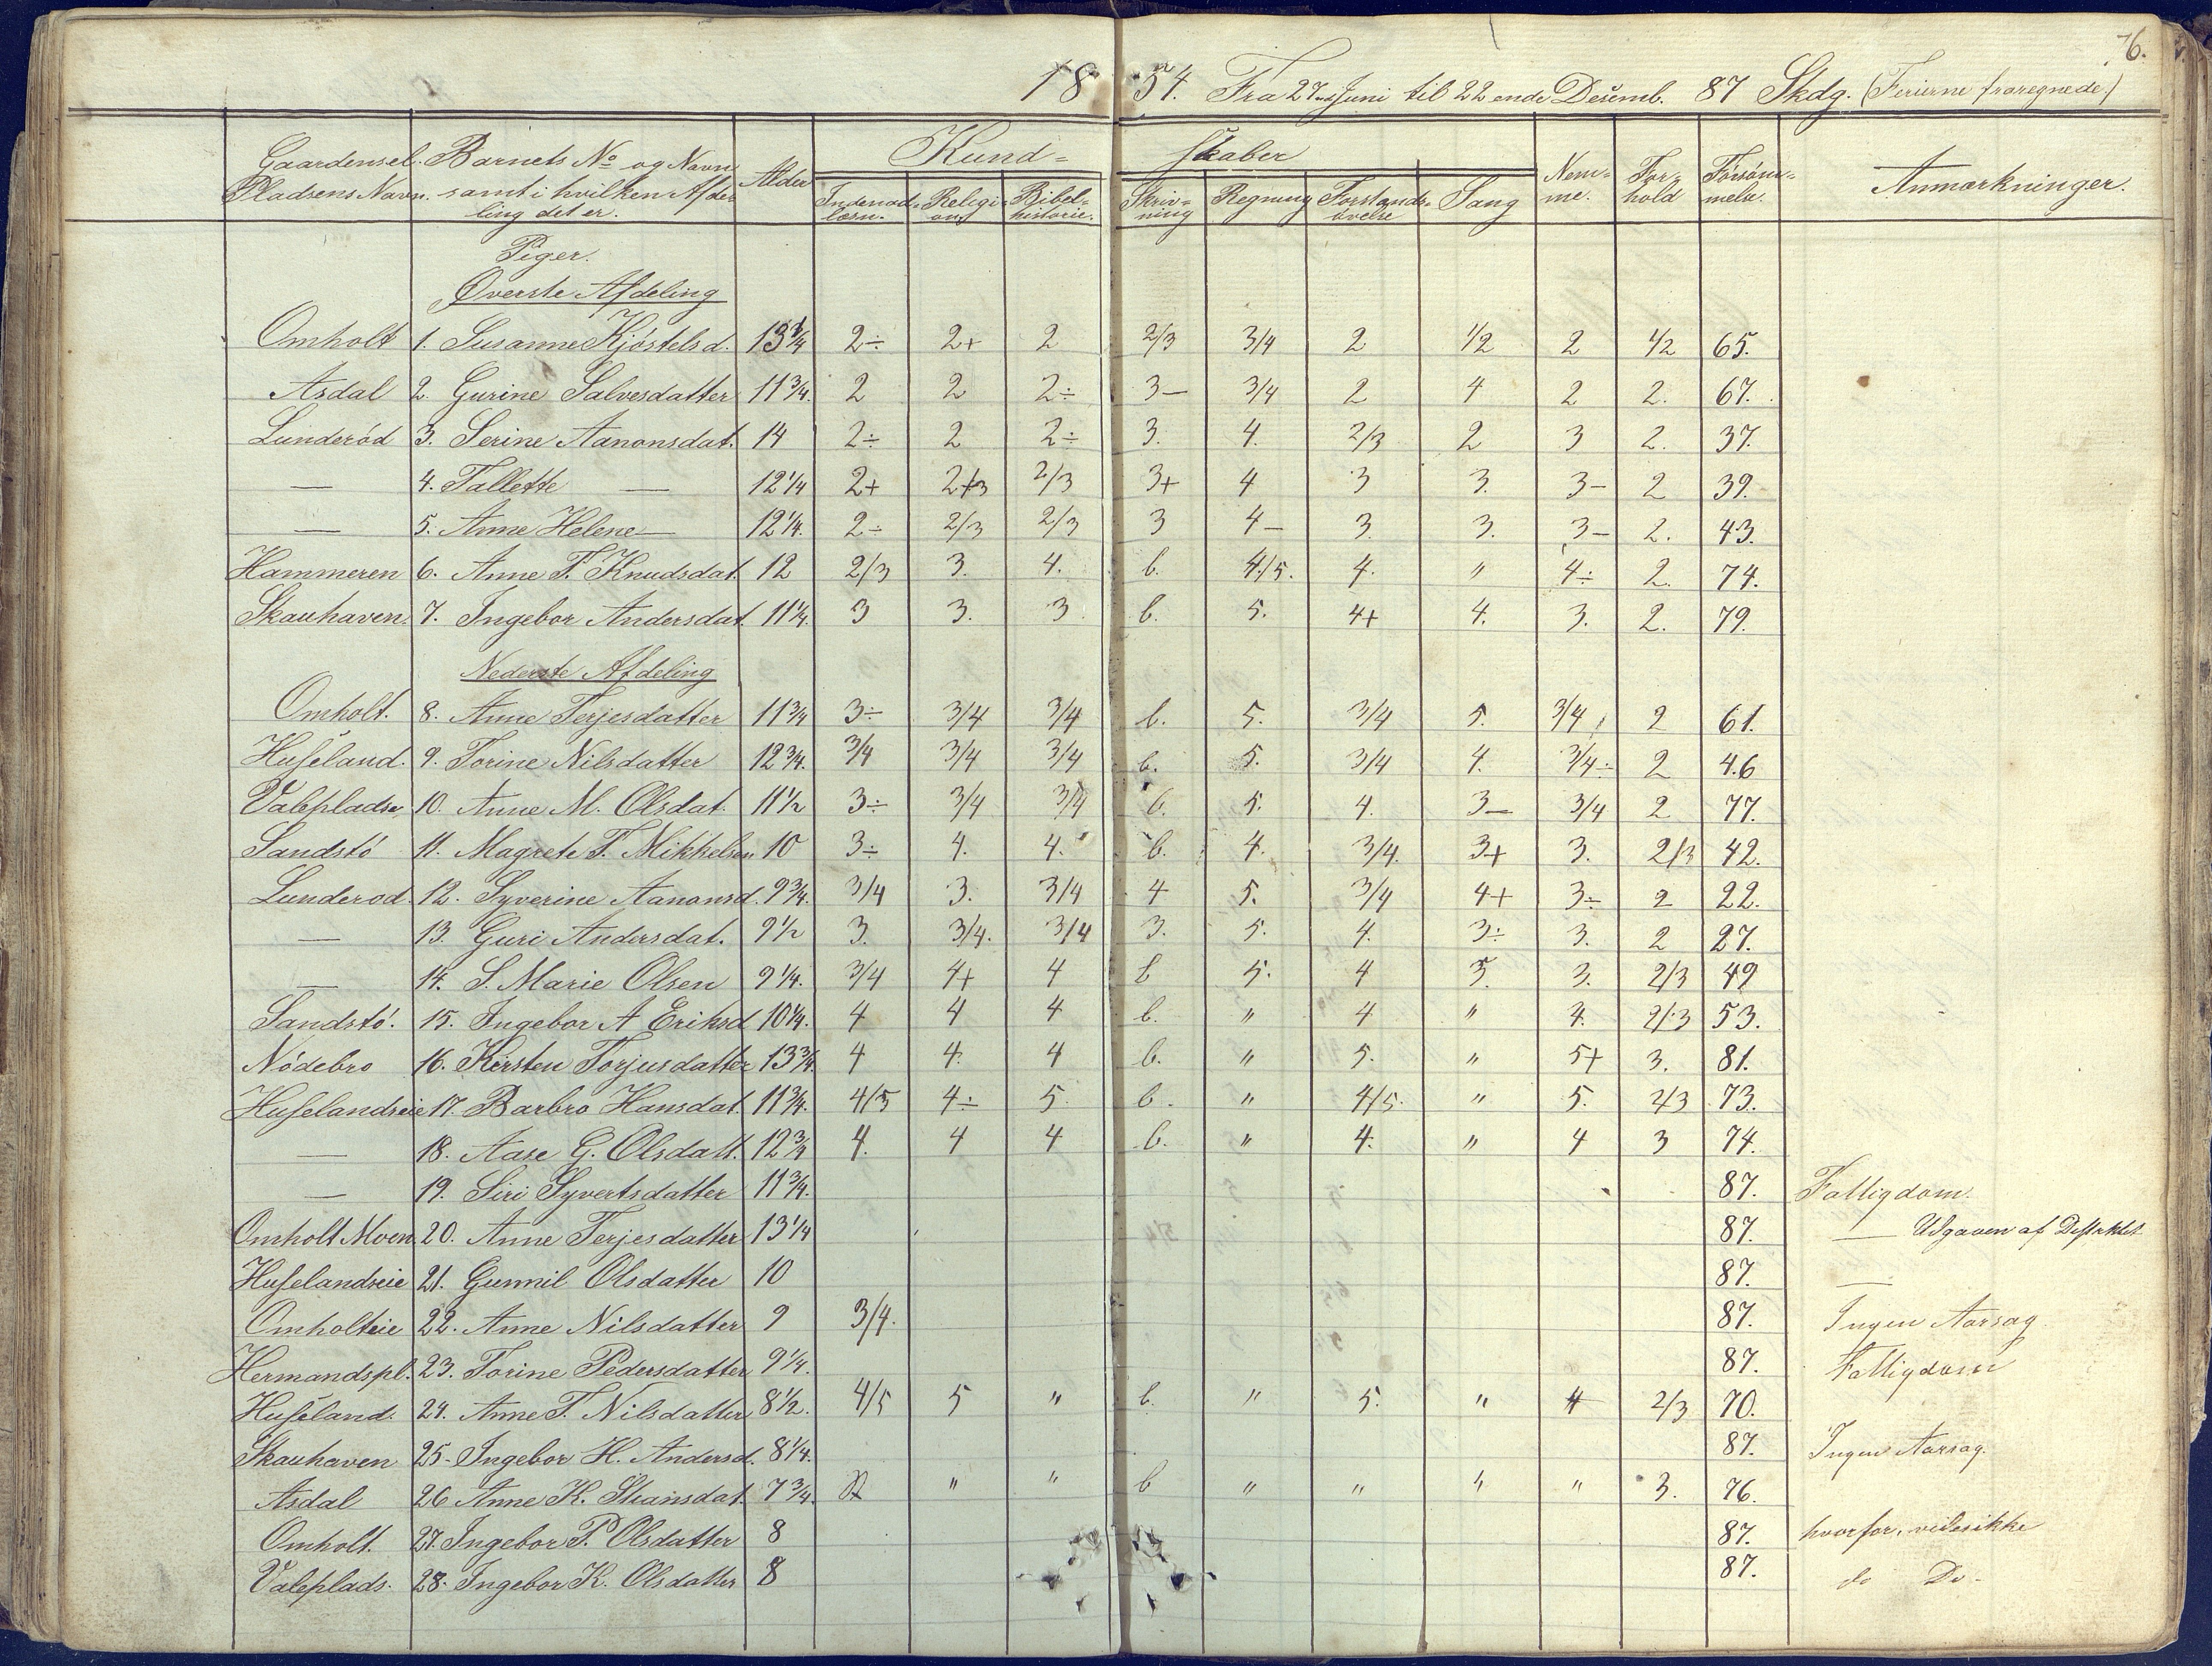 76.
1854. Fra 27de Juni til 22ende Desemb. 87 Skdg. (Ferierne fraregnede.)
Gaardens el. Pladsens Navn. Barnets No og Navn samt i hvilken Afdeling det er. Alder Kundskaber Nemme. Forhold Forsømmelse. Anmærkninger.
Indenadlæsn. Religion Bibelhistorie. Skrivning Regning Forstandsøvelse Sang
Piger.
Øverste Afdeling
Omholt 1. Susanne Kjöstelsd. 13 3/4 2÷ 2+ 2 2/3 3/4 2 1/2 2 1/2 65.
Asdal 2. Gurine Salvesdatter 11 3/4. 2 2 2÷ 3— 3/4 2 4 2 2. 67.
Lunderöd 3. Serine Aanonsdat. 14 2÷ 2 2÷ 3. 4. 2/3 2 3 2. 37.
— 4. Tallette — 12 1/4 2+ 2/3 2/3 3+ 4 3 3. 3- 2 39.
— 5. Anne Helene — 12 1/4. 2÷ 2/3 2/3 3 4- 3. 3. 3- 2. 43.
Hammeren 6. Anne T. Knudsdat. 12 2/3 3. 4. b. 4/5. 4. " 4÷ 2. 74.
Skauhaven. 7. Ingebor Andersdat. 11 1/4. 3 3. 3 b. 5. 4+ 4. 3. 2. 79.
Nederste Afdeling
Omholt. 8. Anne Terjesdatter 11 3/4 3÷ 3/4 3/4 b. 5. 3/4 5. 3/4 2 61.
Huseland. 9. Torine Nilsdatter 12 3/4. 3/4 3/4 3/4 b. 5. 3/4 4. 3/4÷ 2 46
Valeplads. 10. Anne M. Olsdat. 11 1/2 3÷ 3/4 3/4 b. 5. 4. 3— 3/4 2 77.
Sandstö 11. Magrete T. Mikkelsen 10 3÷ 4. 4. b. 4. 3/4. 3+ 3. 2/3 42.
Lunderod. 12. Syverine Aanonsd. 9 3/4. 3/4 3. 3/4 4 5. 3/4 4+ 3÷ 2 22.
— 13. Guri Andersdat. 9 1/2 3. 3/4. 3/4 3. 5. 4. 3÷ 3. 2 27.
— 14. S. Marie Olsen 9 1/4. 3/4 4+ 4 b 5. 4 5. 3. 2/3 49
Sandstö. 15. Ingebor A Eriksd 10 1/4. 4 4 4 b. " 4 " 4. 2/3 53.
Nödebro 16. Kirsten Torjusdatter 13 3/4. 4 4. 4 b. " 5. " 5+ 3. 81.
Huselandseie 17. Barbro Hansdat. 11 3/4. 4/5 4÷ 5. b. " 4/5. " 5. 2/3 73.
— 18. Aase G. Olsdatt. 12 3/4 4. 4 4 b. " 4. " 4 3 74.
— 19. Siri Syvertsdatter 11 3/4. 87. Fattigdom.
Omholt Moen 20. Anne Terjesdatter 13 1/4 87. — Udgaaen af Destriktet
Huselandseie 21. Gunnil Olsdatter 10 87. —
Omholteie 22. Anne Nilsdatter 9 3/4. 87. Ingen Aarsag
Hermandspl. 23. Torine Pedersdatter 9 1/4. 87. Fattigdom
Huseland. 24. Anne T. Nilsdatter 8 1/2. 4/5 5 " b. " 5. " 4 2/3 70.
Skauhaven 25. Ingebor H. Andersd. 8 1/4. 87. Ingen Aarsag.
Asdal 26 Anne K. Stiansdat. 7 3/4. " " b " " " " 3. 76.
Omholt. 27. Ingebor P. Olsdatter 8 87. hvorfor, vides ikke
Valeplads. 28. Ingebor K. Olsdatter 8 87. do Do-